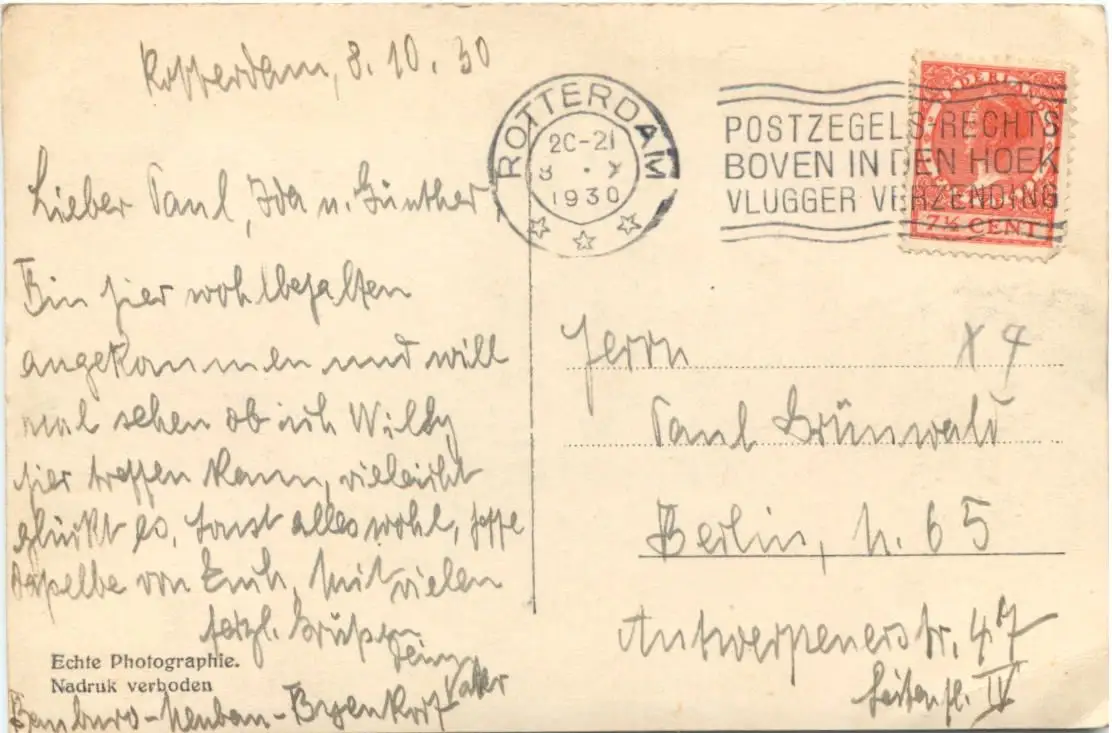 Rotterdam, 8.10.30
Lieber Paul, Ida u. Günther
Bin hier wohlbehalten
angekommen und will
mal sehen ob ich Willy
hier treffen kann, vielleicht
glückt es, sonst alles wohl, hoffe
dasselbe von Euch, Mit vielen
herzl. Grüßen
Dein
Vater
Echte Photographie.
Nadruk verboden
Neubau - Byenkorf
ROTTERDAM
20-21
8 · X
1930
POSTZEGELS-RECHTS
BOVEN IN DEN HOEK
VLUGGER VERZENDING
NEDERLAND
7½ CENT
Herrn
Paul Grünwald
Berlin, N. 65
Antwerpenerstr. 47
Seitenfl. IV